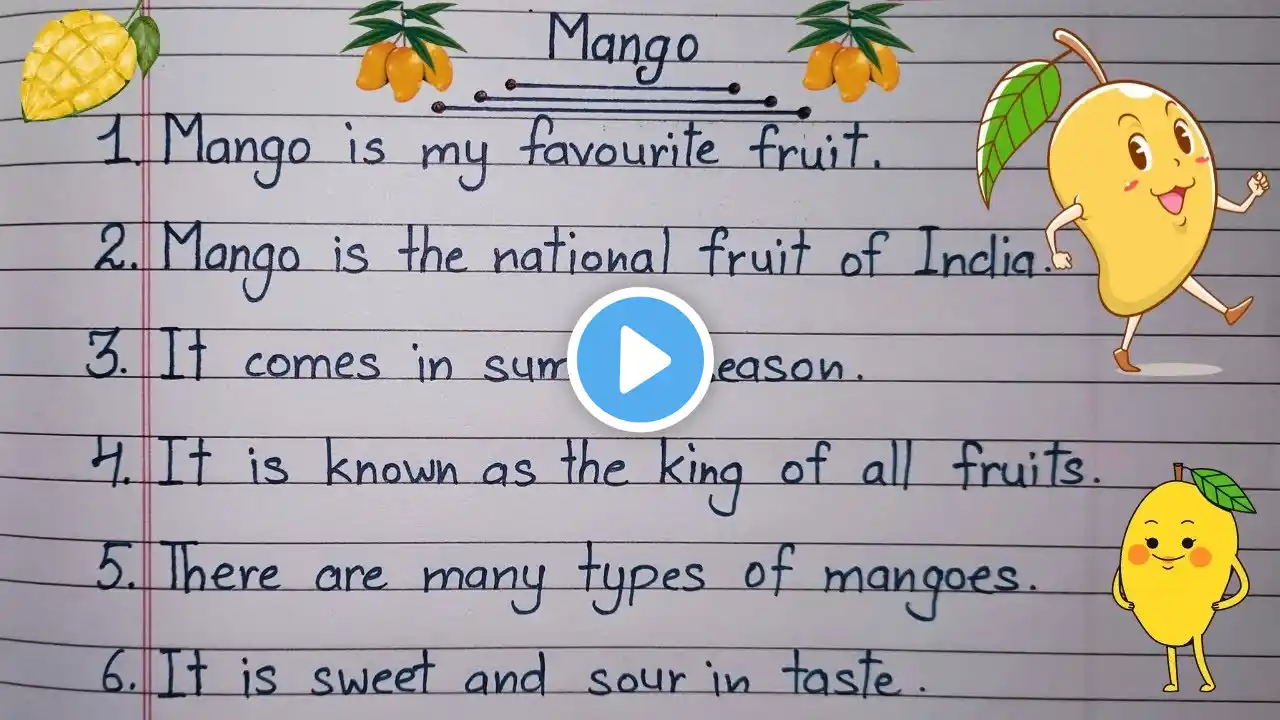 Mango
1. Mango is my favourite fruit.
2. Mango is the national fruit of India.
3. It comes in sum eason.
4. It is known as the king of all fruits.
5. There are many types of mangoes.
6. It is sweet and sour in taste.